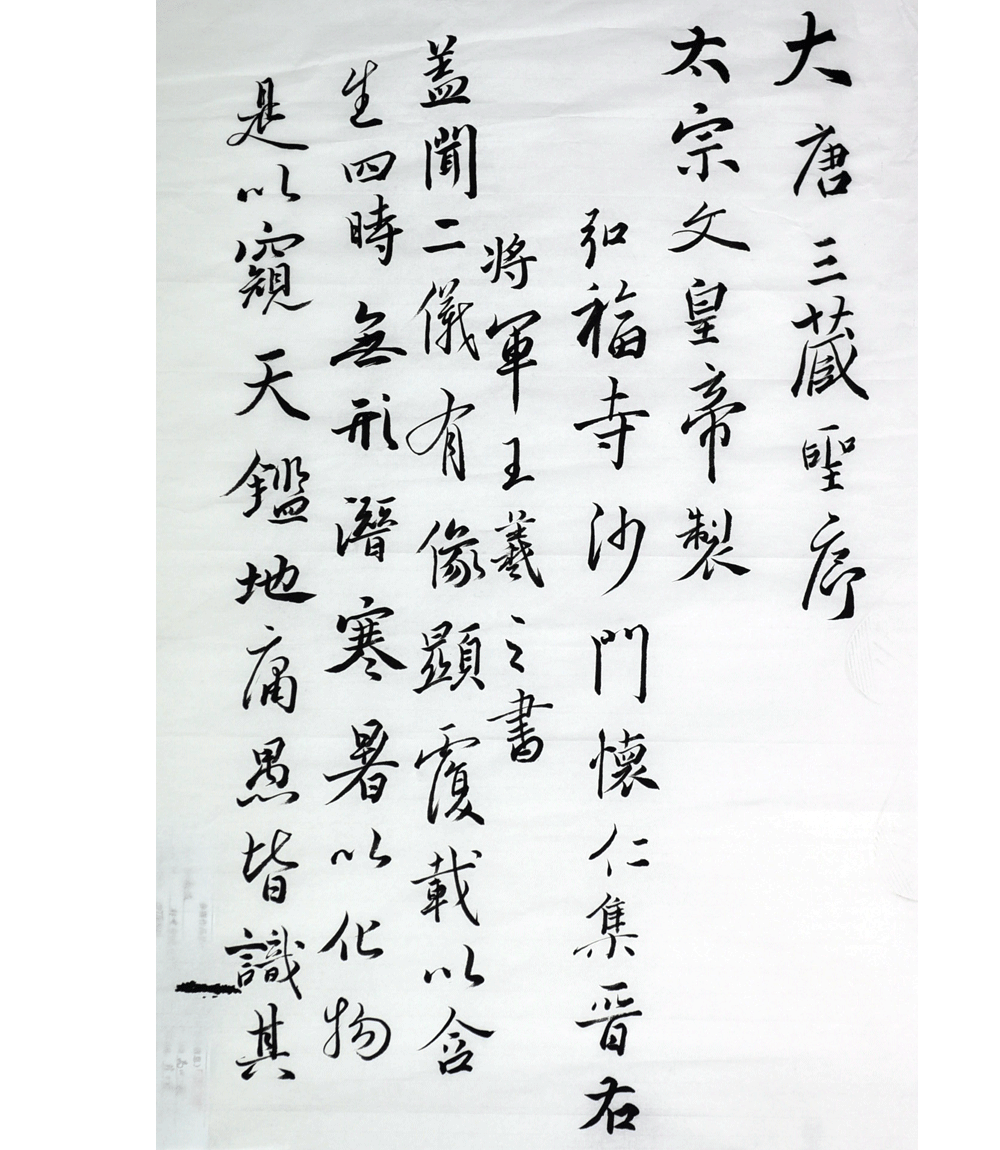 大唐三藏聖序
太宗文皇帝製
弘福寺沙門懷仁集晋右
將軍王羲之書
蓋聞二儀有像顯覆載以含
生四時無形潛寒暑以化物
是以窺天鑑地庸愚皆識其